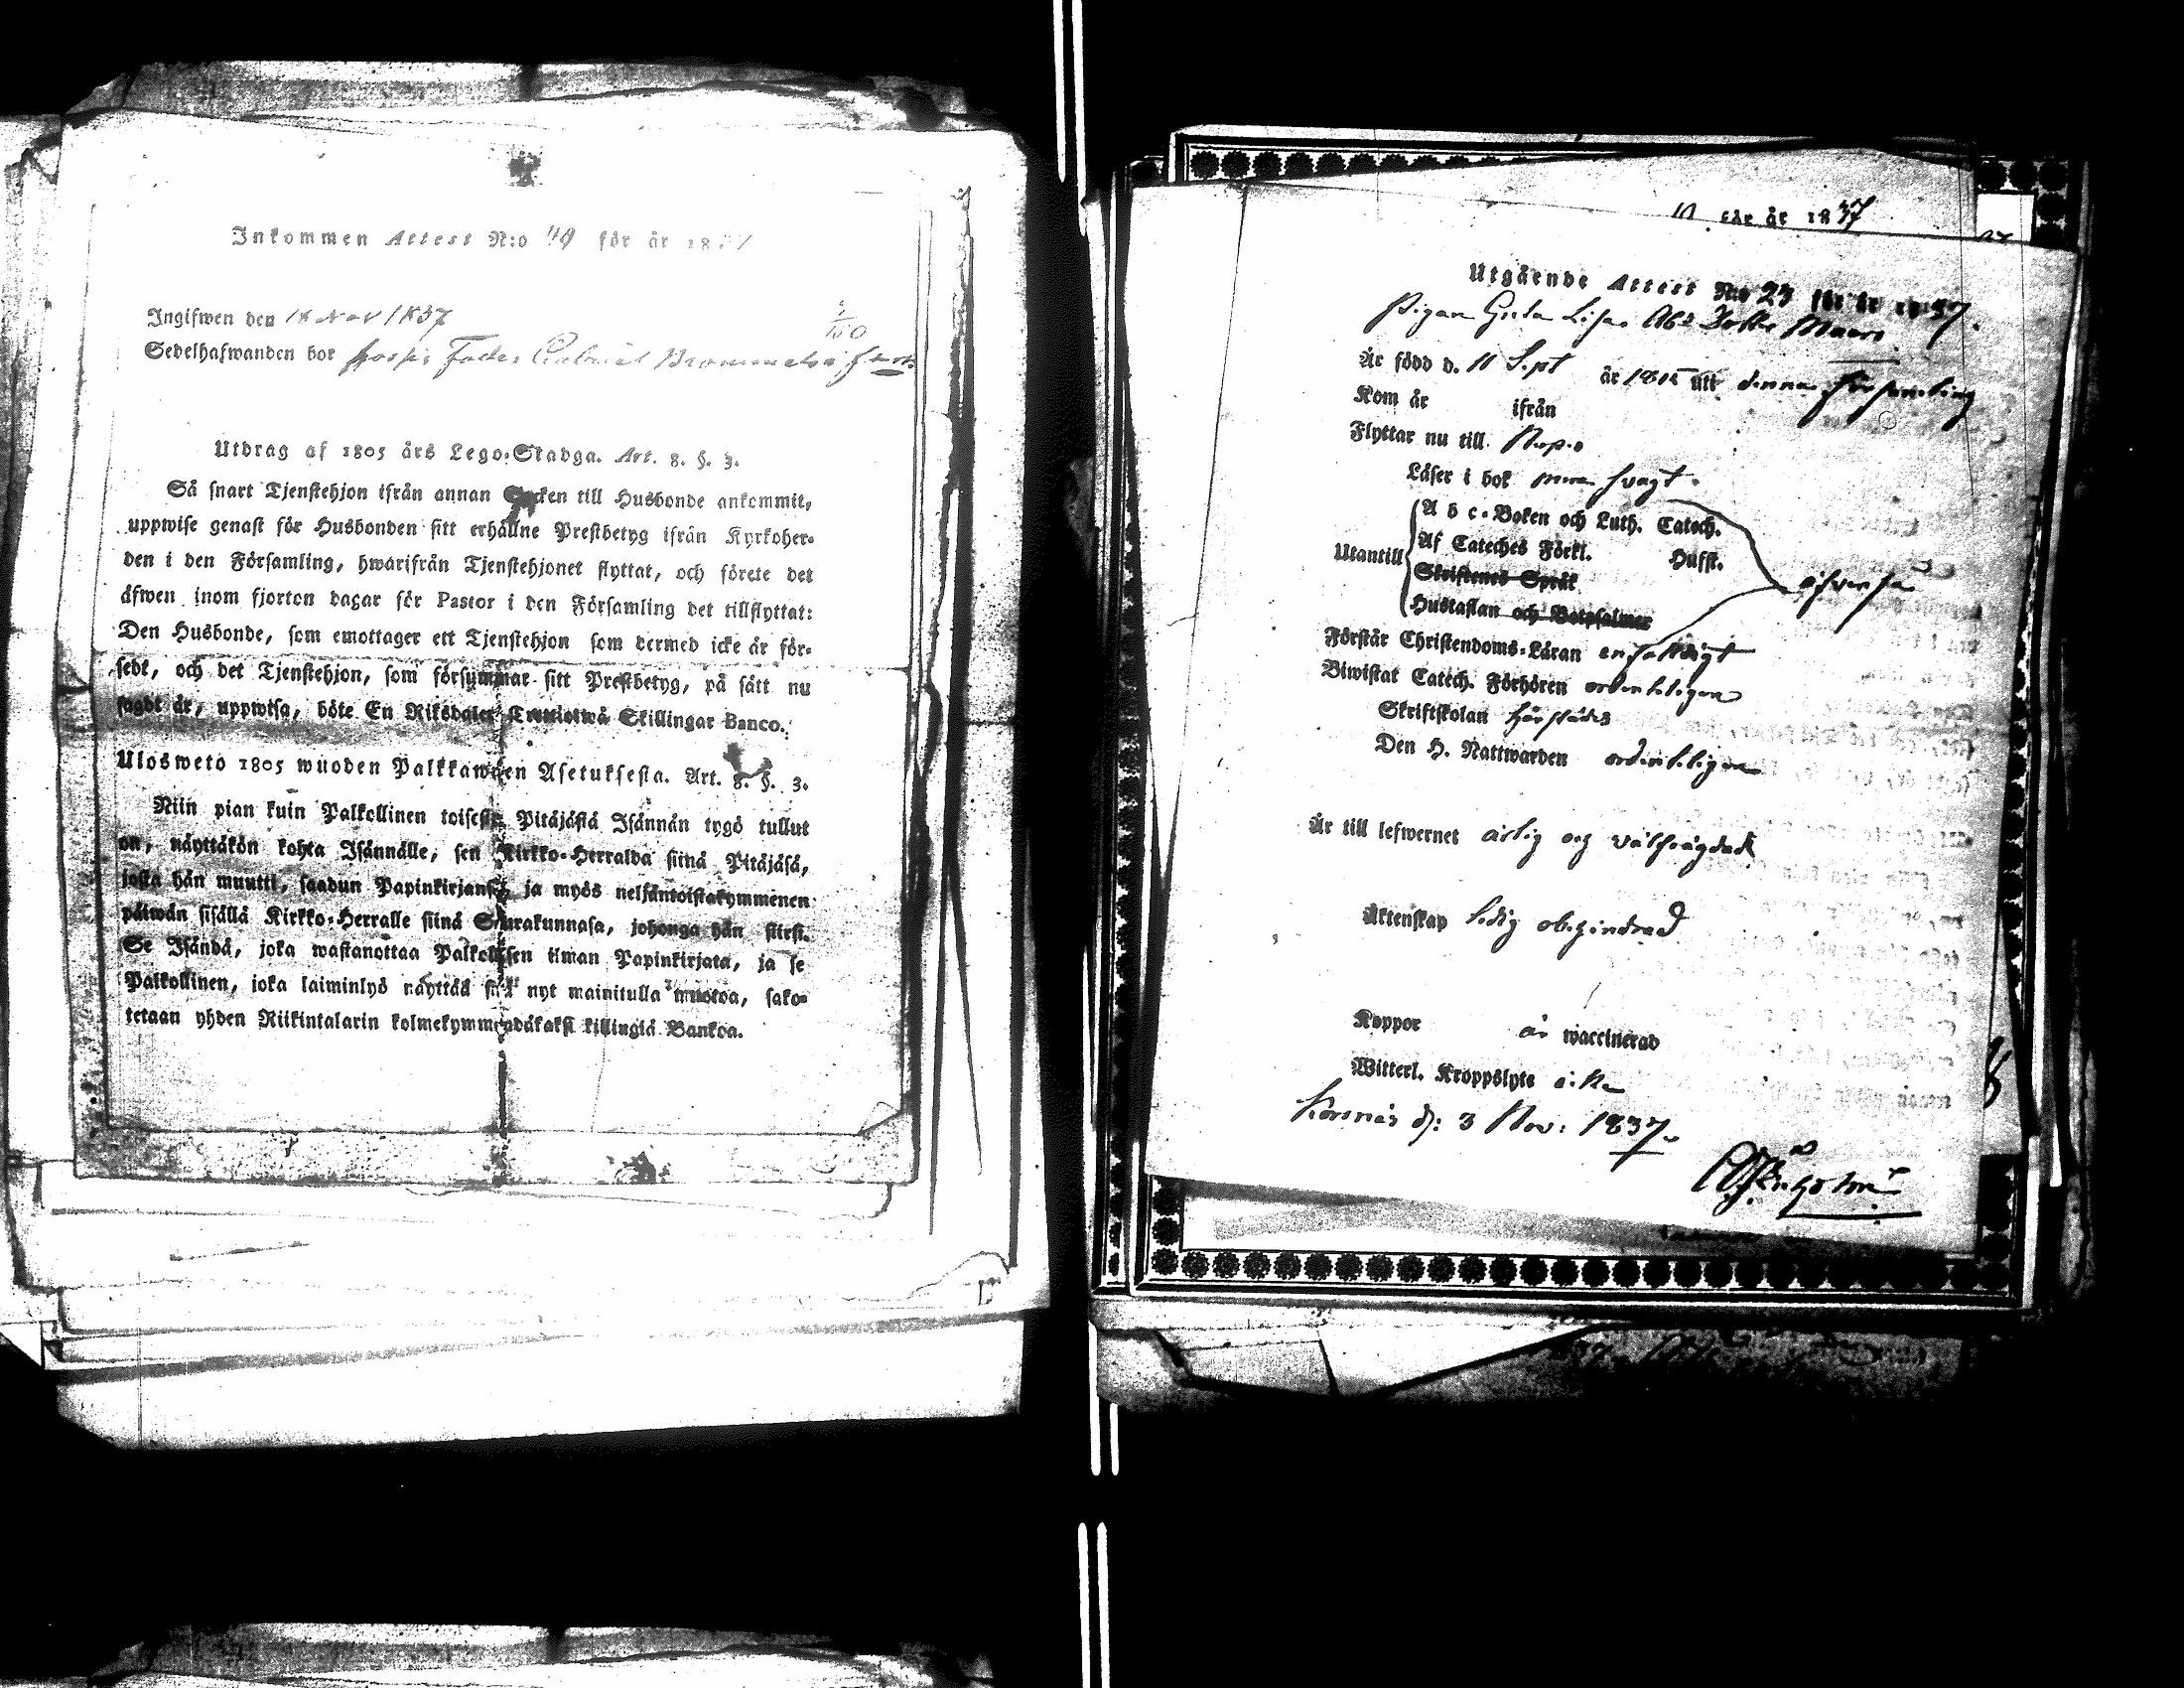 Inkommen Attest N:o 49 för år 1837
Ingifwen den 18 Nov 1837
Sedelhafwanden bor hos sin Fader Gabriel
Utdrag af 1805 års Lego-Stadga. Art. 8. §. 3.
Så snart Tjenstehjon ifrån annan Socken till Husbonde ankommit,
uppwise genast för Husbonden sitt erhållne Prestbetyg ifrån Kyrkoher-
den i den Församling, hwarifrån Tjenstehjonet flyttat, och förete det
äfwen inom fjorton dagar för Pastor i den Församling det tillflyttat:
Den Husbonde, som emottager ett Tjenstehjon som dermed icke är för-
sedt, och det Tjenstehjon, som försummar sitt Prestbetyg, på sätt nu
sagdt är, uppwisa, böte En Riksdaler Trettiotwå Skillingar Banco.
Ulosweto 1805 wuoden Palkkawäen Asetuksesta. Art. 8. §. 3.
Niin pian kuin Palkollinen toisesta Pitäjästä Isännän tygö tullut
on, näyttäkön kohta Isännälle, sen Kirkko-Herralda siinä Pitäjäsä,
josta hän muutti, saadun Papinkirjansa, ja myös neljäntoistakymmenen
päiwän sisällä Kirkko-Herralle siinä Seurakunnasa, johonga hän siirsi.
Se Isändä, joka wastanottaa Palkollisen ilman Papinkirjata, ja se
Palkollinen, joka laiminlyö näyttää sitä nyt mainitulla muotoa, sako-
tetaan yhden Riikintalarin kolmekymmendäkaksi killingiä Bankoa.
för år 1837
Utgående Attest N:o 23 för år 1837.
Pigan Greta Lisa Abr Dotter
Är född d. 11 Sept år 1815 utt denna församling
Kom år ifrån
Flyttar nu till
Läser i bok svagt
A b c-Boken och Luth. Catech.
Af Cateches Förkl. Husst.
Utantill
Skriftenes Språk
Hustaflan och Botpsalmer
äfven så
Förstår Christendoms-Läran enfaldigt
Biwistat Catech. Förhören ordenteligen
Skriftskolan härstädes
Den H. Nattwarden ordenteligen
Är till lefwernet ärlig och välfrägdad
Äktenskap ledig obehindrad
Koppor är waccinerad
Witterl. Kroppslyte icke
Korsnäs d: 3 Nov: 1837.